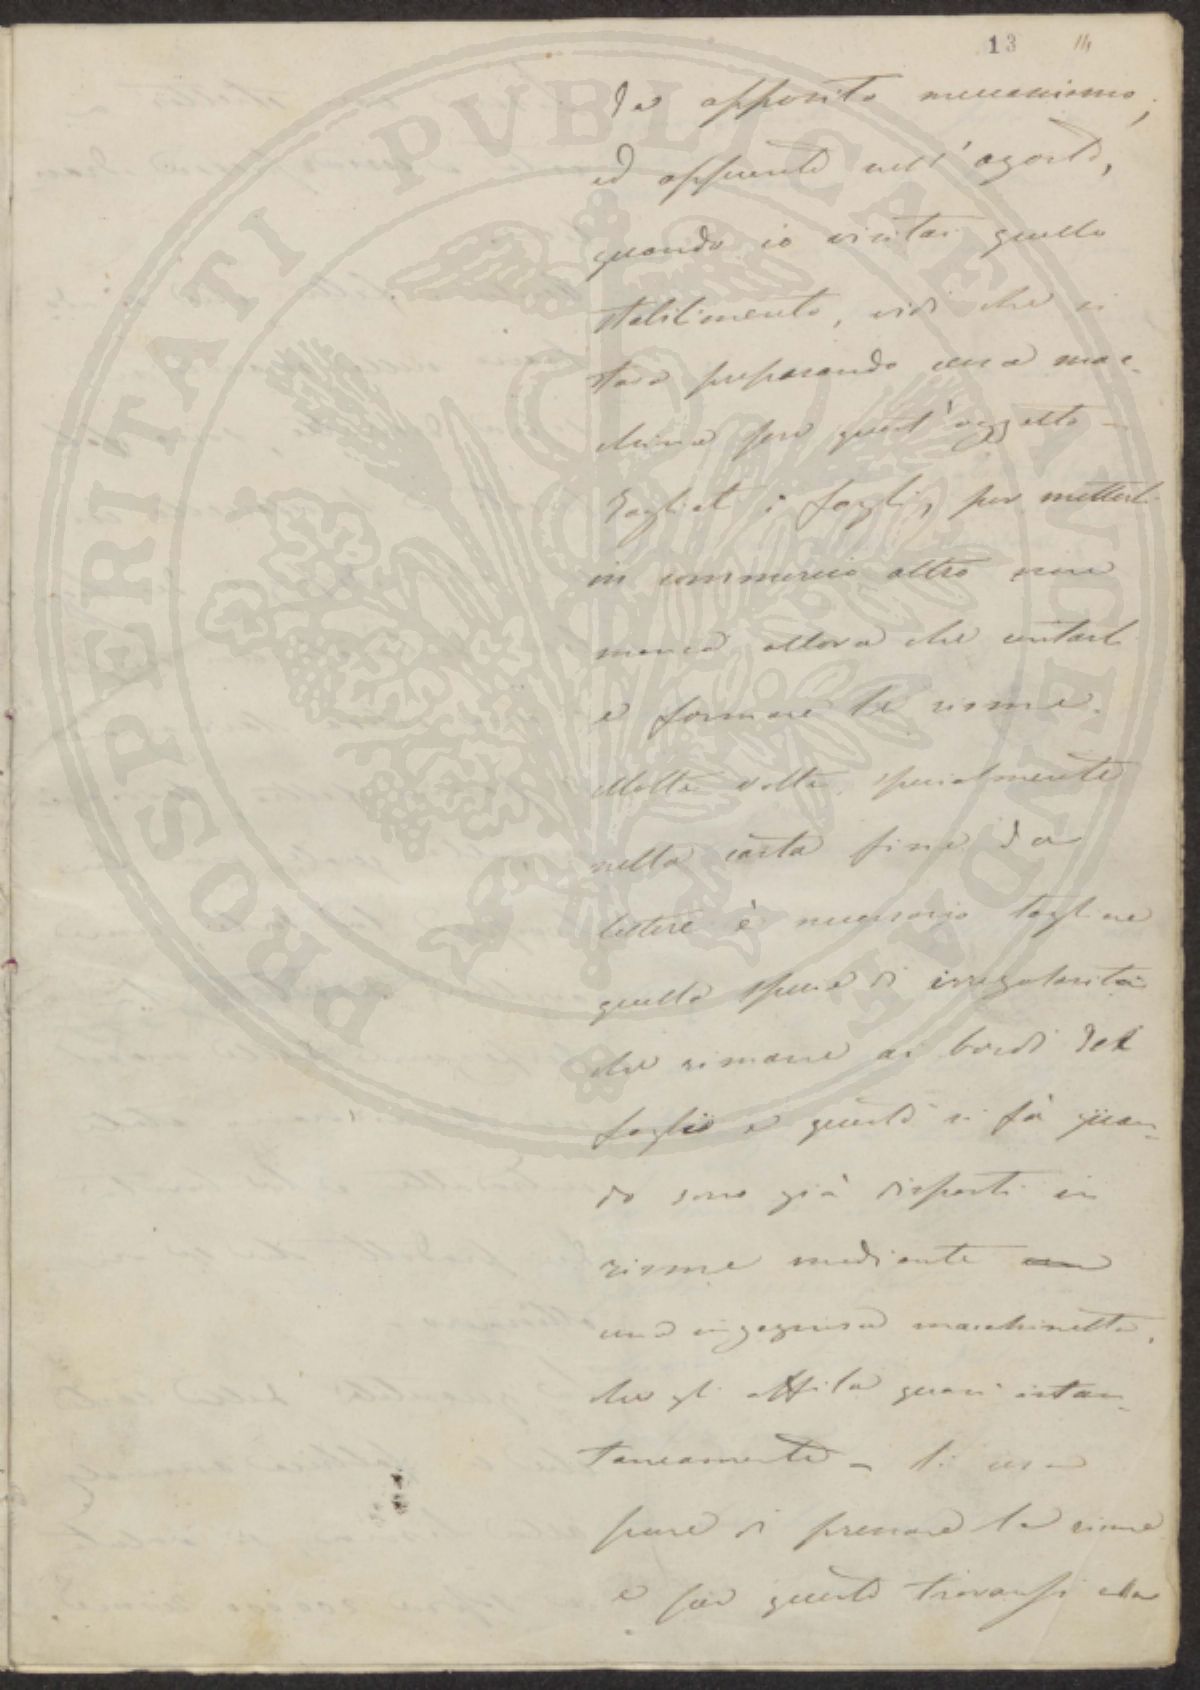 13 14
da apposito meccanismo,
ed appunto nell'agosto,
quando io visitai quello
stabilimento, vidi che si
stava preparando una mac-
china per quest'oggetto –
Tagliati i fogli, per metterli
in commercio altro non
manca allora che contarli
e formare le risme.
Molte volte, specialmente
nella carta fina da
lettere è necessario togliere
quella specie di irregolarità
che rimane ai bordi del
foglio e questo si fà quan-
do sono già disposti in
risme mediante
una ingegnosa macchinetta,
che gli affila quasi istan-
taneamente – Si usa
pure di pressare le risme
e per questo trovansi alle
PROSPERITATI PVBLICAE AVGENDAE